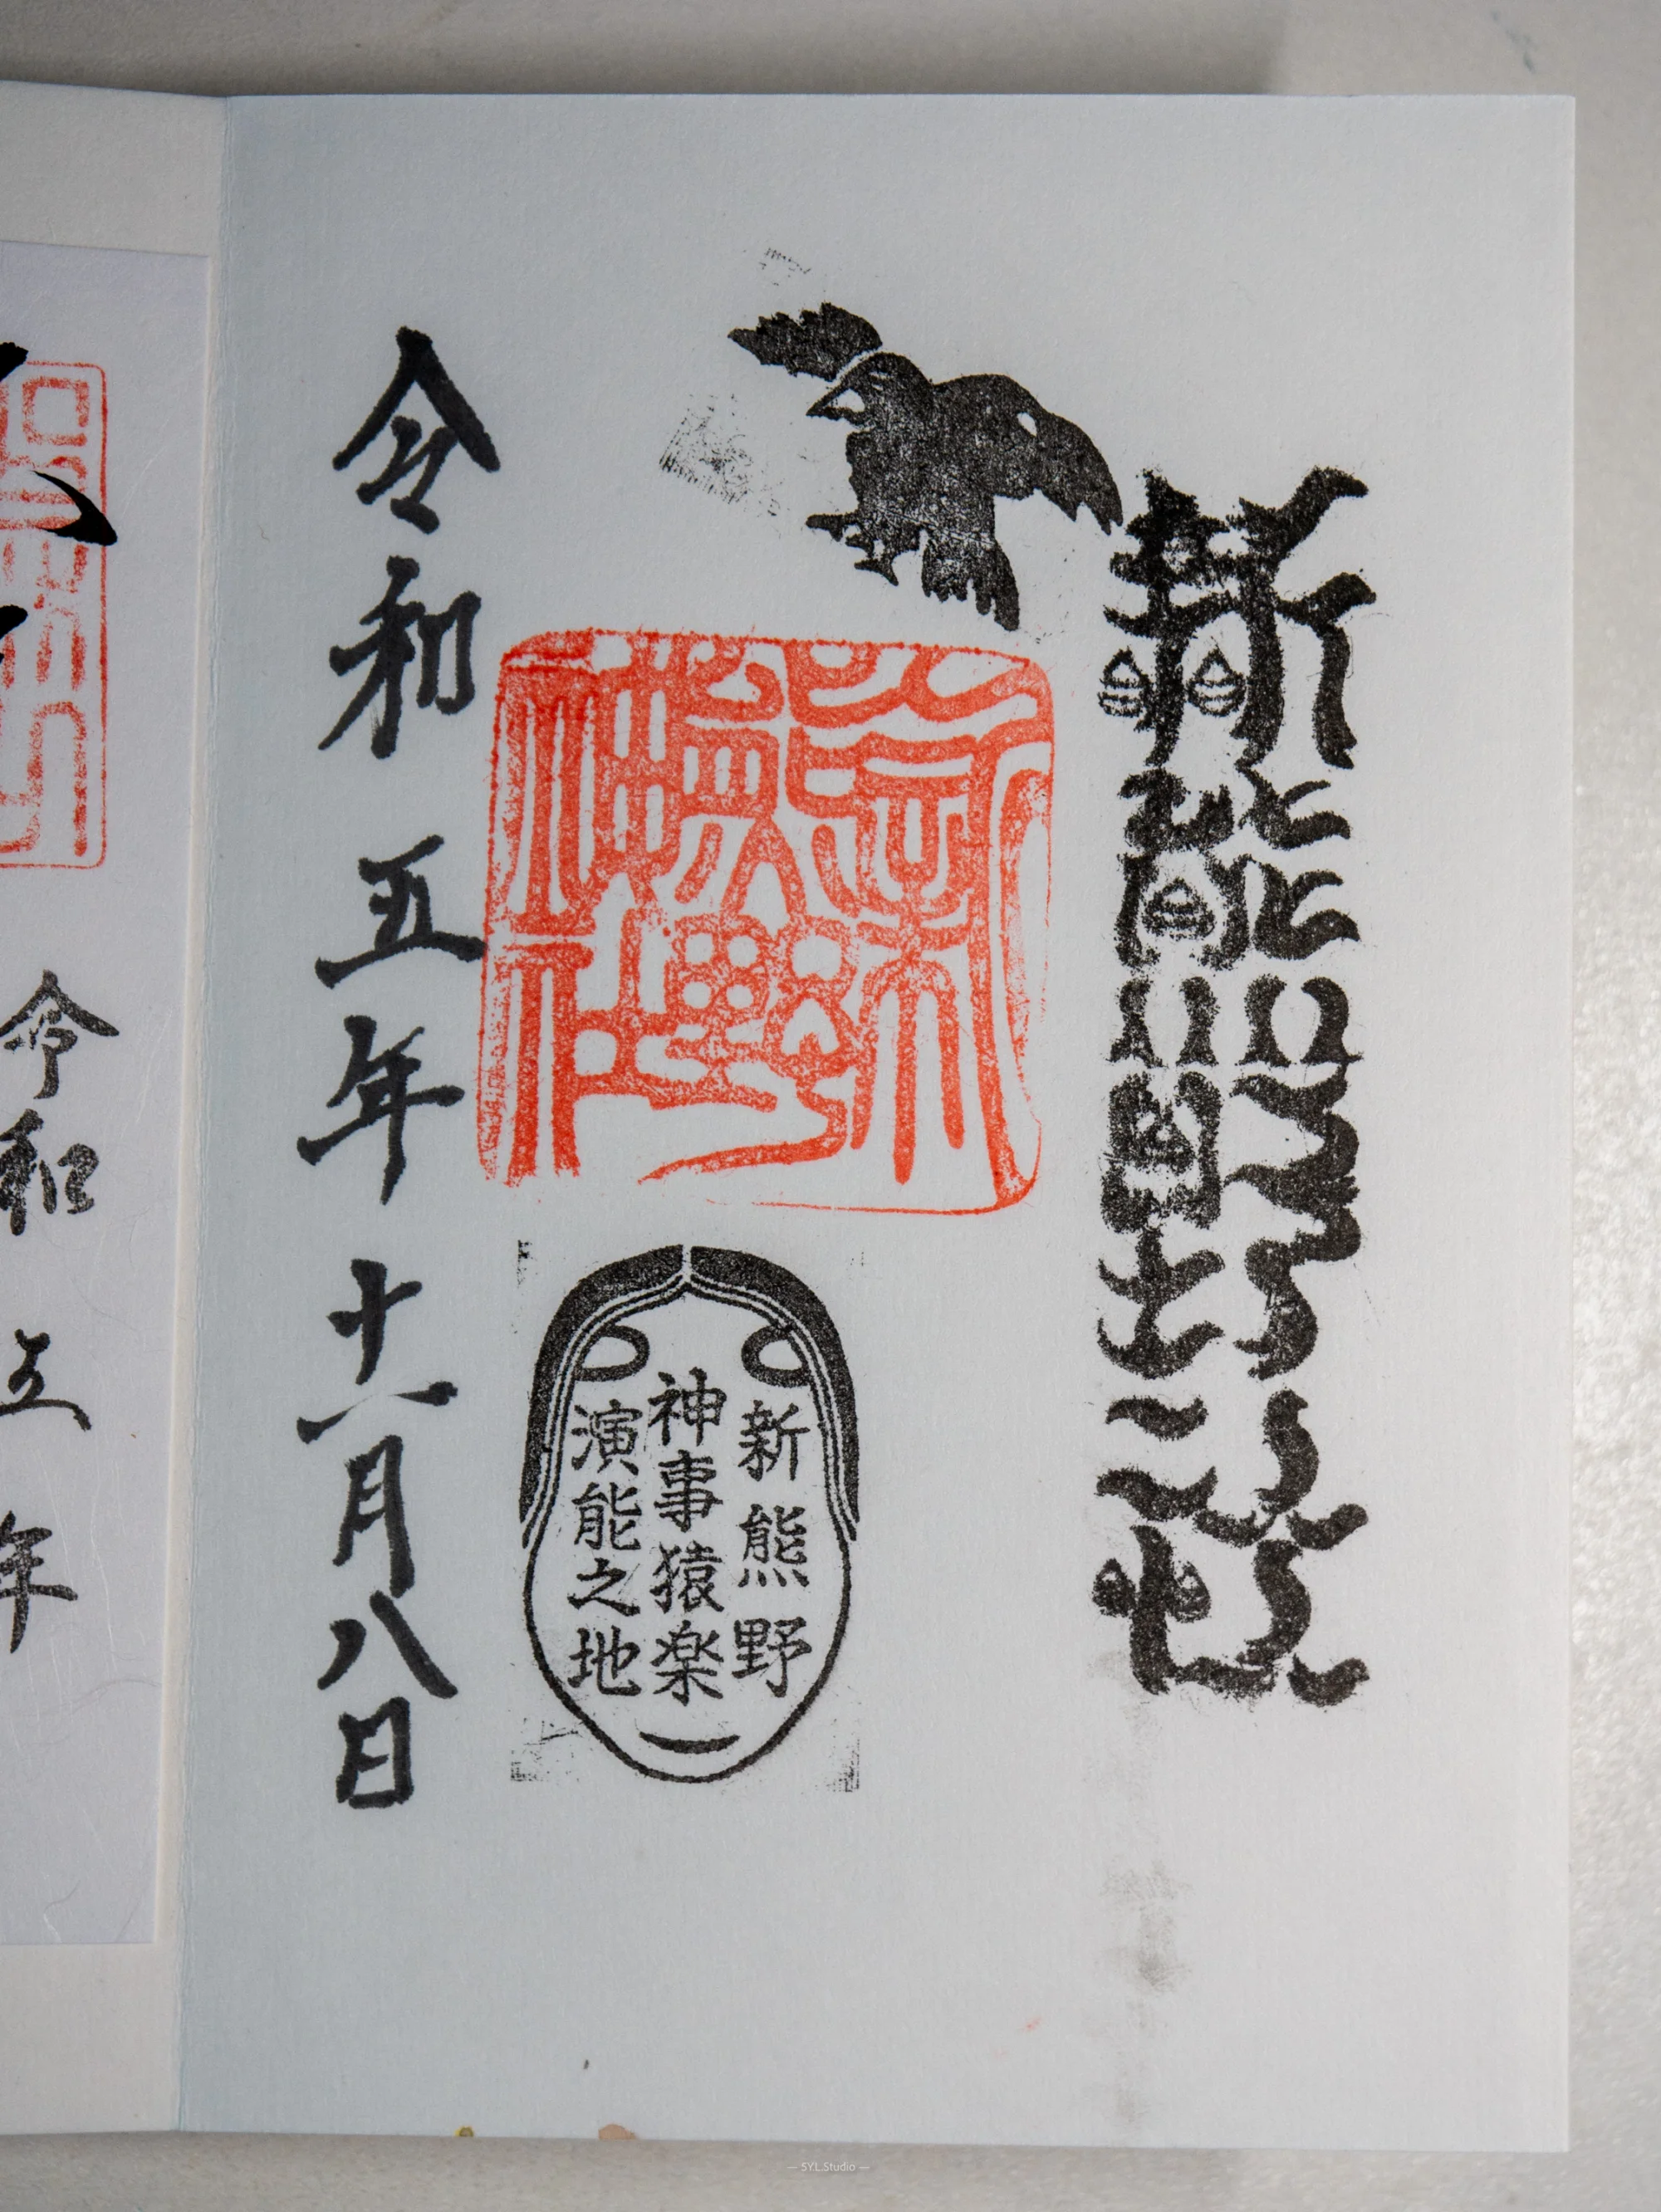 新熊野社
新熊野神社
新熊野
神事猿楽
演能之地
令和五年十一月八日
令和五年
— SY.L.Studio —